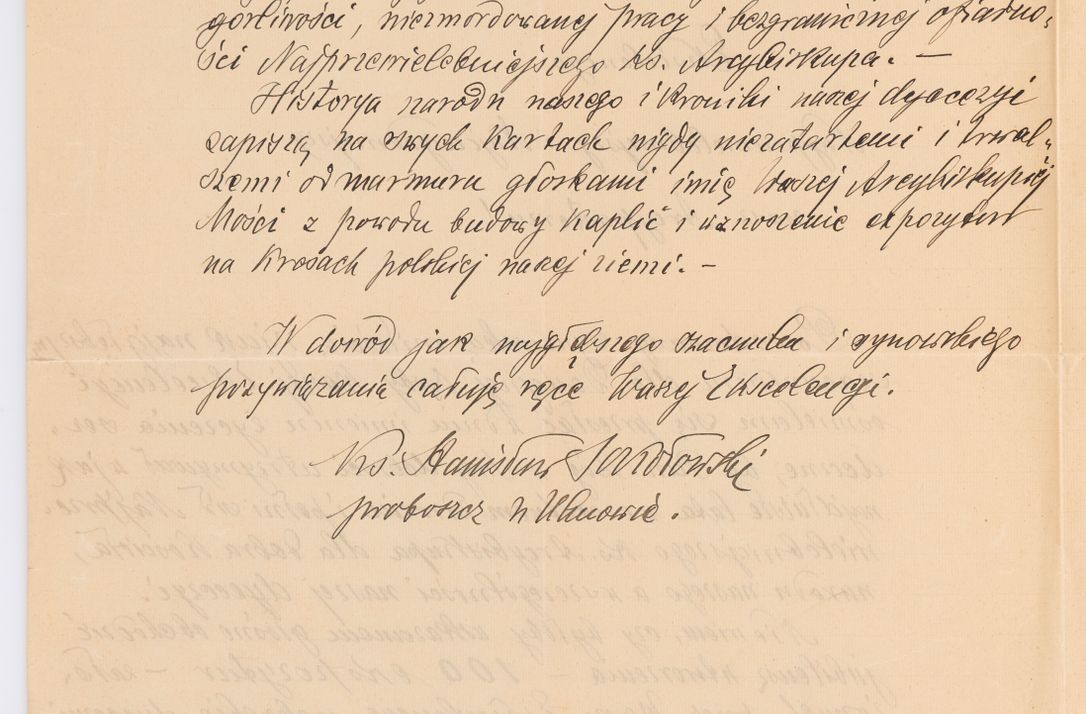 gorliwości, niezmordowanej pracy i bezgranicznej ofiarno-
ści Najprzewielebniejszego Ks. Arcybiskupa. —
Historya narodu naszego i Kroniki naszej dyecezyi
zapiszą na swych Kartach nigdy niezatartemi i trwal-
szemi od marmuru głoskami imię Waszej Arcybiskupiej
Mości z powodu budowy Kaplic i wznoszenie expozytur
na Kresach polskiej naszej ziemi. —
W dowód jak najgłębszego szacunku i synowskiego
przywiązania całuję ręce Waszej Excelencyi.
Ks. Stanisław
proboszcz z Uhnowie.